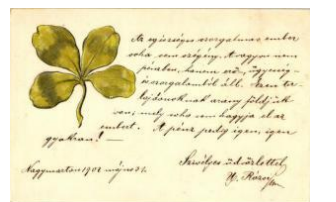 Az egészséges szorgalmas ember
soha sem szegény. A vagyon nem
pénzben, hanem erő, ügyesség-
és szorgalomból áll. Ezen tu-
lajdonoknak arany földjük
van, mely soha sem hagyja el az
embert. A pénz pedig igen, igen
gyakran! —
Nagymarton 1901 május
Szivélyes üdvözlettel